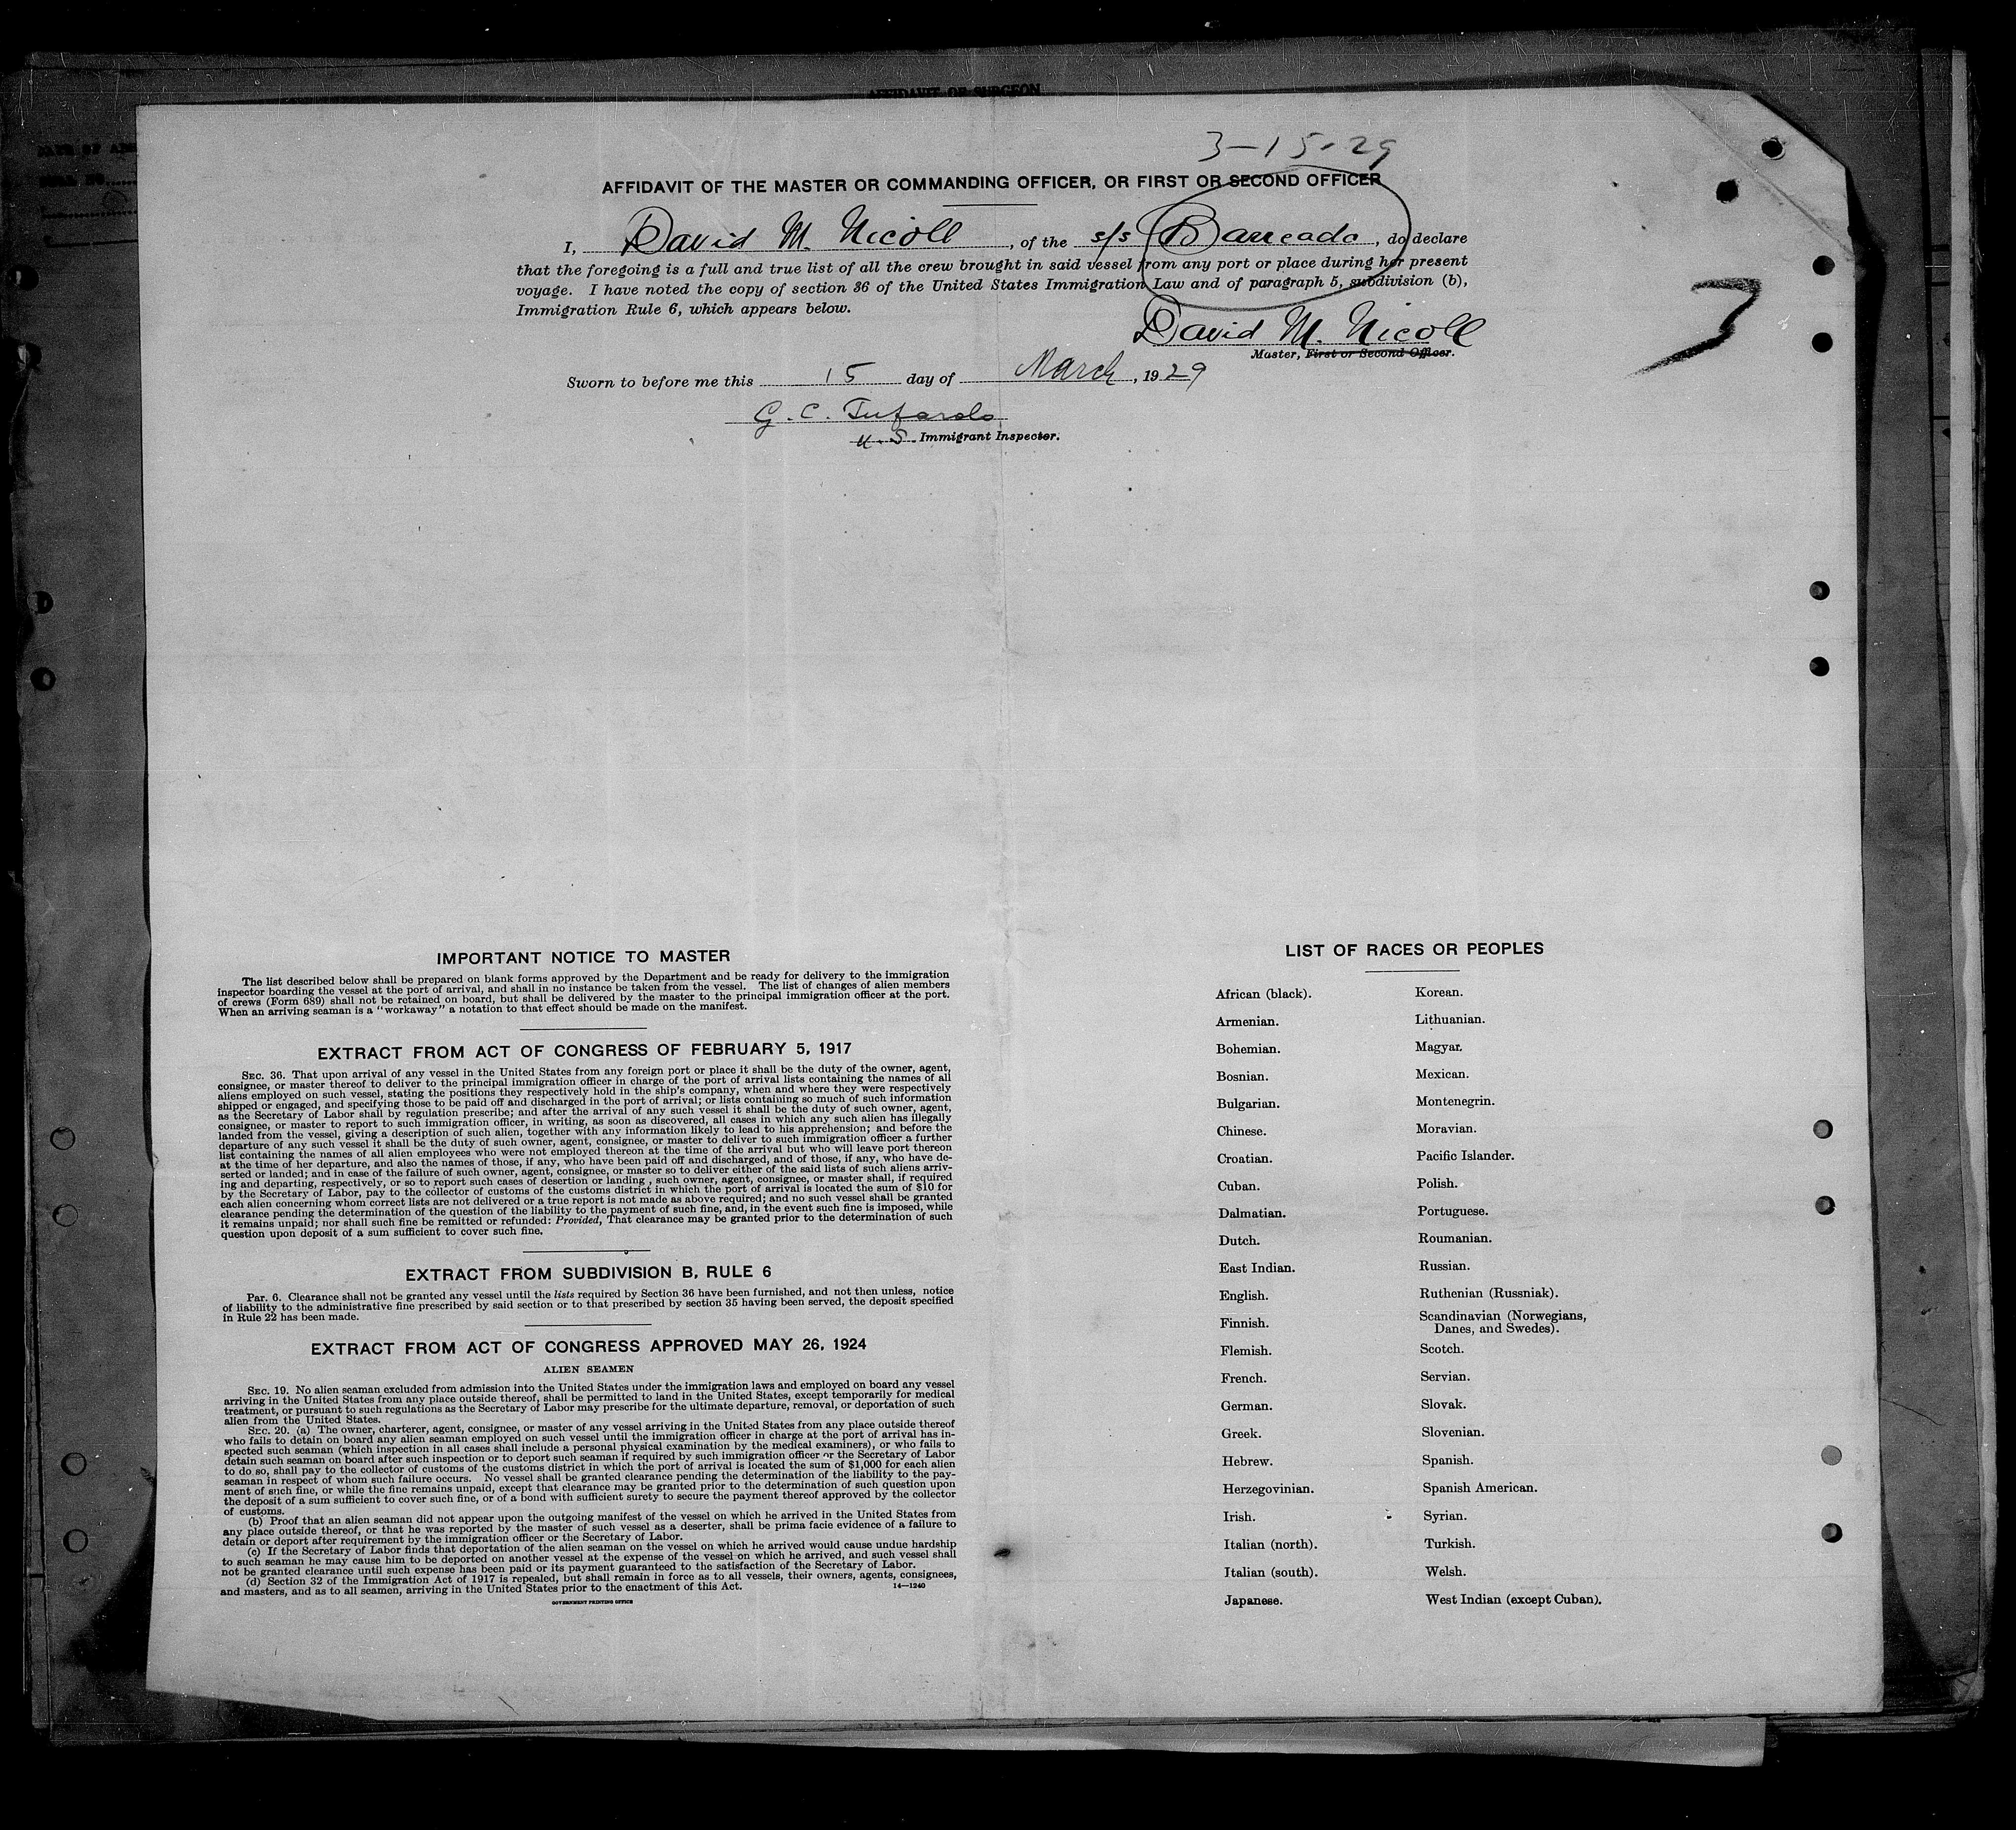 AFFIDAVIT OF SURGEON
3-15-29
AFFIDAVIT OF THE MASTER OR COMMANDING OFFICER, OR FIRST OR SECOND OFFICER
I, David M. Nicoll, of the s/s, do declare
that the foregoing is a full and true list of all the crew brought in said vessel from any port or place during her present
voyage. I have noted the copy of section 36 of the United States Immigration Law and of paragraph 5, subdivision (b),
Immigration Rule 6, which appears below.
3
David M. Nicoll
Master, First or Second Officer.
Sworn to before me this 15 day of March, 1929
G. C.
U.S. Immigrant Inspector.
IMPORTANT NOTICE TO MASTER
The list described below shall be prepared on blank forms approved by the Department and be ready for delivery to the immigration
inspector boarding the vessel at the port of arrival, and shall in no instance be taken from the vessel. The list of changes of alien members
of crews (Form 689) shall not be retained on board, but shall be delivered by the master to the principal immigration officer at the port.
When an arriving seaman is a "workaway" a notation to that effect should be made on the manifest.
EXTRACT FROM ACT OF CONGRESS OF FEBRUARY 5, 1917
SEC. 36. That upon arrival of any vessel in the United States from any foreign port or place it shall be the duty of the owner, agent,
consignee, or master thereof to deliver to the principal immigration officer in charge of the port of arrival lists containing the names of all
aliens employed on such vessel, stating the positions they respectively hold in the ship's company, when and where they were respectively
shipped or engaged, and specifying those to be paid off and discharged in the port of arrival; or lists containing so much of such information
as the Secretary of Labor shall by regulation prescribe; and after the arrival of any such vessel it shall be the duty of such owner, agent,
consignee, or master to report to such immigration officer, in writing, as soon as discovered, all cases in which any such alien has illegally
landed from the vessel, giving a description of such alien, together with any information likely to lead to his apprehension; and before the
departure of any such vessel it shall be the duty of such owner, agent, consignee, or master to deliver to such immigration officer a further
list containing the names of all alien employees who were not employed thereon at the time of the arrival but who will leave port thereon
at the time of her departure, and also the names of those, if any, who have been paid off and discharged, and of those, if any, who have de-
serted or landed; and in case of the failure of such owner, agent, consignee, or master so to deliver either of the said lists of such aliens arriv-
ing and departing, respectively, or so to report such cases of desertion or landing , such owner, agent, consignee, or master shall, if required
by the Secretary of Labor, pay to the collector of customs of the customs district in which the port of arrival is located the sum of $10 for
each alien concerning whom correct lists are not delivered or a true report is not made as above required; and no such vessel shall be granted
clearance pending the determination of the question of the liability to the payment of such fine, and, in the event such fine is imposed, while
it remains unpaid; nor shall such fine be remitted or refunded: Provided, That clearance may be granted prior to the determination of such
question upon deposit of a sum sufficient to cover such fine.
EXTRACT FROM SUBDIVISION B, RULE 6
Par. 6. Clearance shall not be granted any vessel until the lists required by Section 36 have been furnished, and not then unless, notice
of liability to the administrative fine prescribed by said section or to that prescribed by section 35 having been served, the deposit specified
in Rule 22 has been made.
EXTRACT FROM ACT OF CONGRESS APPROVED MAY 26, 1924
ALIEN SEAMEN
SEC. 19. No alien seaman excluded from admission into the United States under the immigration laws and employed on board any vessel
arriving in the United States from any place outside thereof, shall be permitted to land in the United States, except temporarily for medical
treatment, or pursuant to such regulations as the Secretary of Labor may prescribe for the ultimate departure, removal, or deportation of such
alien from the United States.
SEC. 20. (a) The owner, charterer, agent, consignee, or master of any vessel arriving in the United States from any place outside thereof
who fails to detain on board any alien seaman employed on such vessel until the immigration officer in charge at the port of arrival has in-
spected such seaman (which inspection in all cases shall include a personal physical examination by the medical examiners), or who fails to
detain such seaman on board after such inspection or to deport such seaman if required by such immigration officer or the Secretary of Labor
to do so, shall pay to the collector of customs of the customs district in which the port of arrival is located the sum of $1,000 for each alien
seaman in respect of whom such failure occurs. No vessel shall be granted clearance pending the determination of the liability to the pay-
ment of such fine, or while the fine remains unpaid, except that clearance may be granted prior to the determination of such question upon
the deposit of a sum sufficient to cover such fine, or of a bond with sufficient surety to secure the payment thereof approved by the collector
of customs.
(b) Proof that an alien seaman did not appear upon the outgoing manifest of the vessel on which he arrived in the United States from
any place outside thereof, or that he was reported by the master of such vessel as a deserter, shall be prima facie evidence of a failure to
detain or deport after requirement by the immigration officer or the Secretary of Labor.
(c) If the Secretary of Labor finds that deportation of the alien seaman on the vessel on which he arrived would cause undue hardship
to such seaman he may cause him to be deported on another vessel at the expense of the vessel on which he arrived, and such vessel shall
not be granted clearance until such expense has been paid or its payment guaranteed to the satisfaction of the Secretary of Labor.
(d) Section 32 of the Immigration Act of 1917 is repealed, but shall remain in force as to all vessels, their owners, agents, consignees,
and masters, and as to all seamen, arriving in the United States prior to the enactment of this Act. 14—1240
GOVERNMENT PRINTING OFFICE
LIST OF RACES OR PEOPLES
African (black). Korean.
Armenian. Lithuanian.
Bohemian. Magyar.
Bosnian. Mexican.
Bulgarian. Montenegrin.
Chinese. Moravian.
Croatian. Pacific Islander.
Cuban. Polish.
Dalmatian. Portuguese.
Dutch. Roumanian.
East Indian. Russian.
English. Ruthenian (Russniak).
Finnish. Scandinavian (Norwegians,
Danes, and Swedes).
Flemish. Scotch.
French. Servian.
German. Slovak.
Greek. Slovenian.
Hebrew. Spanish.
Herzegovinian. Spanish American.
Irish. Syrian.
Italian (north). Turkish.
Italian (south). Welsh.
Japanese. West Indian (except Cuban).